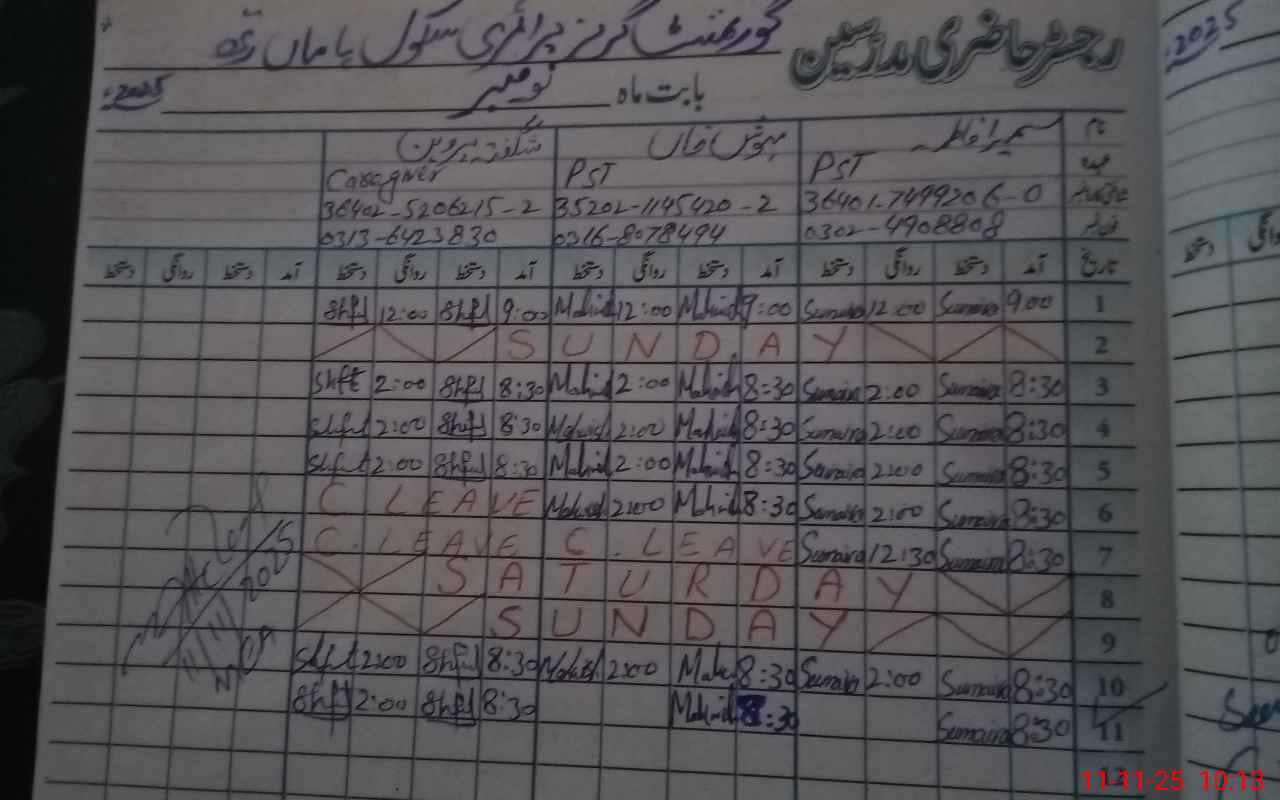 رجسٹر حاضری مدرسین گورنمنٹ گرلز پرائمری سکول
2025
بابت ماہ نومبر 2025
نام سمیرا فاطمہ مہوش خاں شگفتہ پروین
عہدہ PST PST Caregiver
36401-7499206-0 35202-1145420-2 36402-5206215-2
0302-4908808 0316-8078494 0313-6423830
تاریخ آمد دستخط روانگی دستخط آمد دستخط روانگی دستخط آمد دستخط روانگی دستخط آمد دستخط روانگی دستخط
1 9:00 Sumaira 12:00 Sumaira 9:00 Mahwish 12:00 Mahwish 9:00 Shft 12:00 Shft
2 SUNDAY
3 8:30 Sumaira 2:00 Sumaira 8:30 Mahwish 2:00 Mahwish 8:30 Shft 2:00 Shft
4 8:30 Sumaira 2:00 Sumaira 8:30 Mahwish 2:00 Mahwish 8:30 Shft 2:00 Shft
5 8:30 Sumaira 2:00 Sumaira 8:30 Mahwish 2:00 Mahwish 8:30 Shft 2:00 Shft
6 8:30 Sumaira 2:00 Sumaira 8:30 Mahwish 2:00 Mahwish C LEAVE
7 8:30 Sumaira 12:30 Sumaira C. LEAVE C. LEAVE
8 SATURDAY
9 SUNDAY
10 8:30 Sumaira 2:00 Sumaira 8:30 2:00 Mahwish 8:30 Shft 2:00 Shft
11 8:30 Sumaira 8:30 Mahwish 8:30 Shft 2:00 Shft
11-11-25 10:13